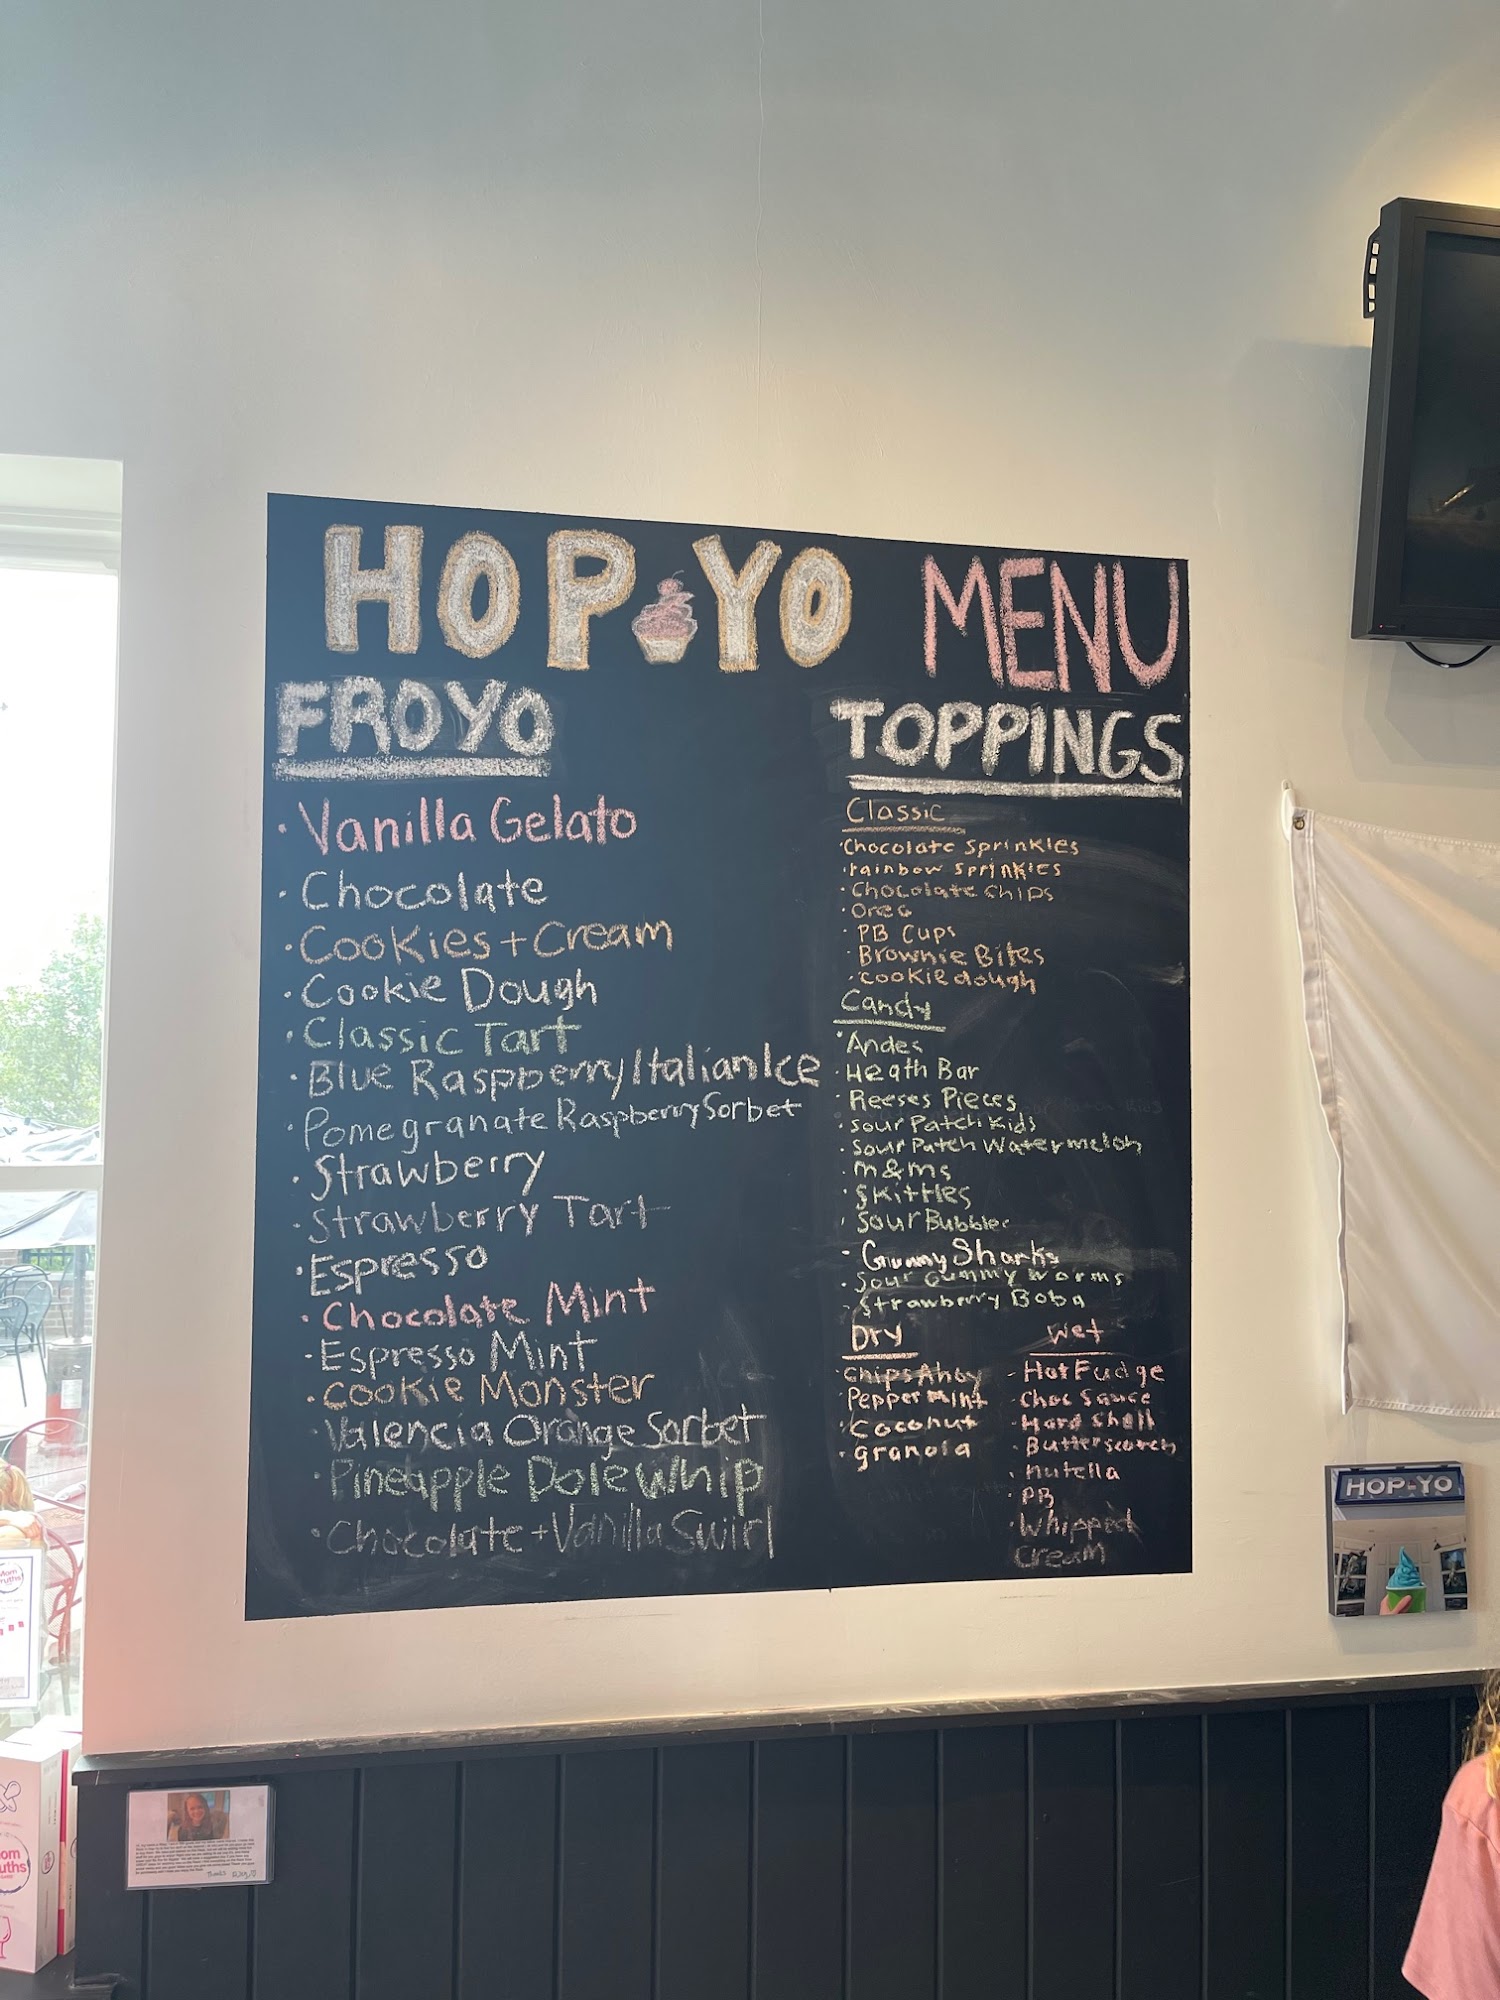 HOP YO MENU
FROYO
· Vanilla Gelato
· Chocolate
· Cookies + Cream
· Cookie Dough
· Classic Tart
· Blue Raspberry Italian Ice
· Pomegranate Raspberry Sorbet
· Strawberry
· Strawberry Tart
· Espresso
· Chocolate Mint
· Espresso Mint
· Cookie Monster
· Valencia Orange Sorbet
· Pineapple Dole Whip
· Chocolate + Vanilla Swirl
TOPPINGS
Classic
· Chocolate Sprinkles
· rainbow Sprinkles
· Chocolate Chips
· Oreo
· PB Cups
· Brownie Bites
· cookie dough
Candy
· Andes
· Heath Bar
· Reeses Pieces
· Sour Patch Kids
· Sour Patch Watermelon
· m&ms
· Skittles
· Sour Bubbles
· Gummy Sharks
· Sour Gummy worms
· Strawberry Boba
Dry
· Chips Ahoy
· Peppermint
· Coconut
· granola
Wet
· Hot Fudge
· Choc Sauce
· Hard Shell
· Butterscotch
· nutella
· PB
· Whipped
Cream
HOP-YO